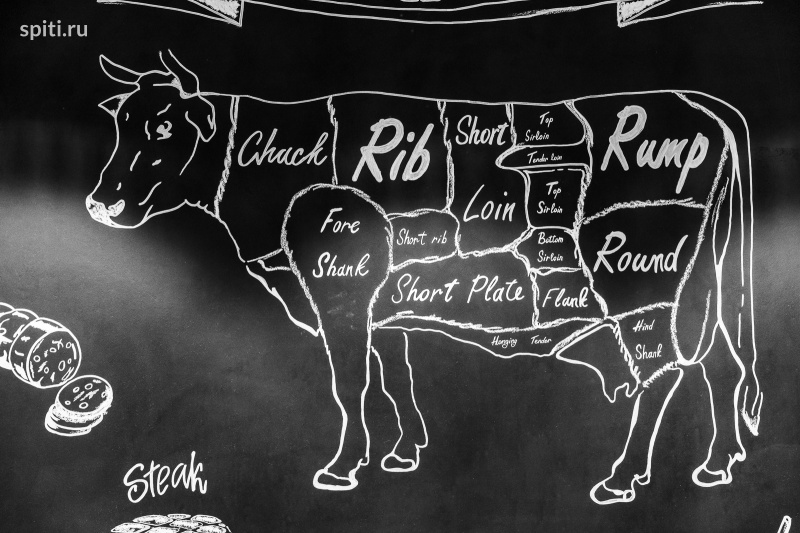 spiti.ru
Chuck
Rib
Short
Loin
Top
Sirloin
Tender loin
Top
Sirloin
Bottom
Sirloin
Rump
Fore
Shank
Short rib
Short Plate
Flank
Round
Hanging Tender
Hind
Shank
Steak